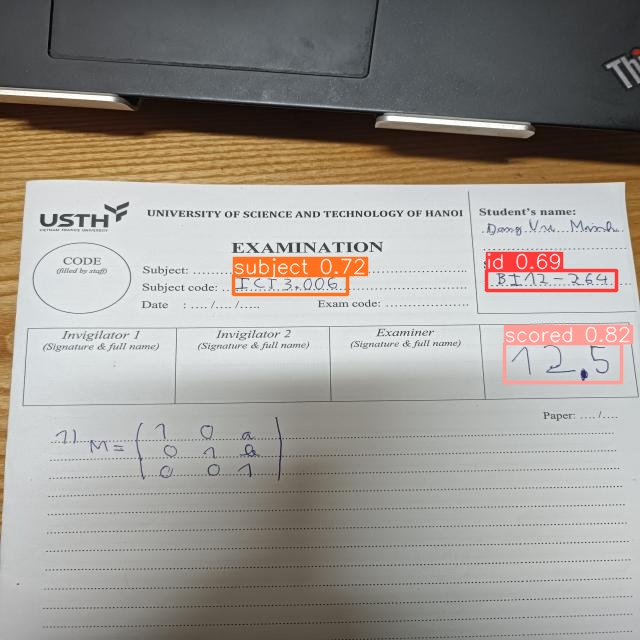 Thi
USTH
VIETNAM FRANCE UNIVERSITY
UNIVERSITY OF SCIENCE AND TECHNOLOGY OF HANOI
Student's name:
Dang Vu Minh
EXAMINATION
CODE
(filled by staff)
Subject: ...
subject 0.72
id 0.69
Subject code: ... ICT3.006
BI12-264
Date : .... /.... /.....
Exam code: ...
Invigilator 1
(Signature & full name)
Invigilator 2
(Signature & full name)
Examiner
(Signature & full name)
scored 0.82
12.5
Paper: .... /....
1) M = ( 1 0 a
0 1 b
0 0 1 )